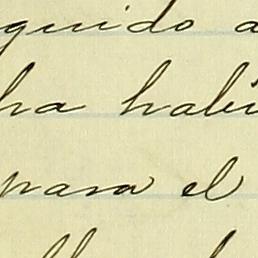 guido a
ha habi
para el